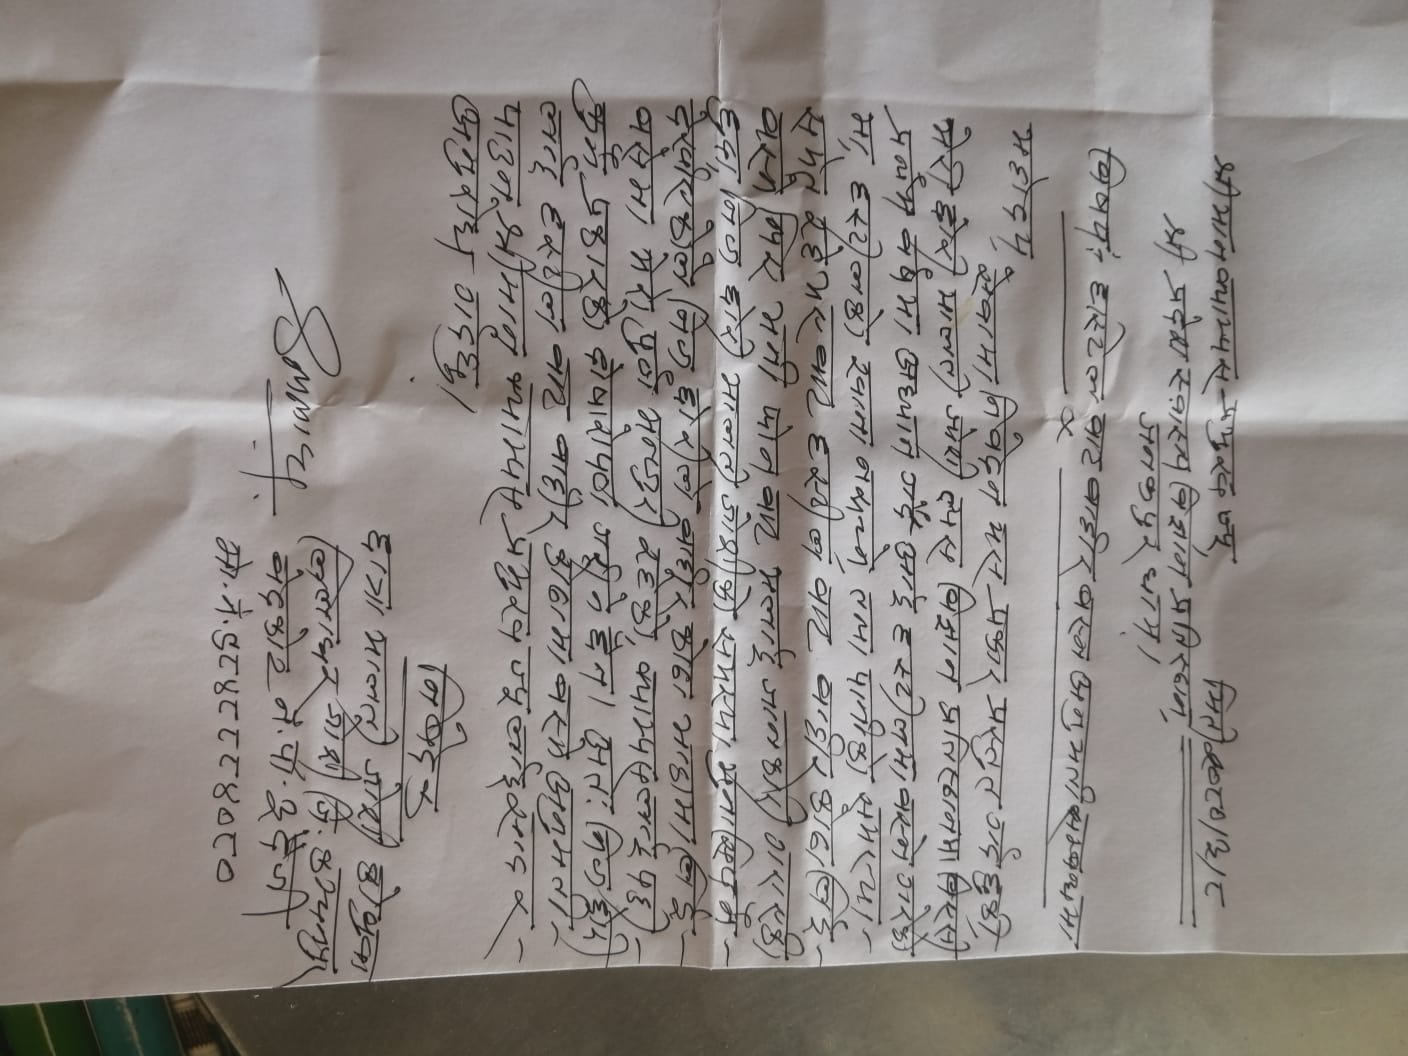 श्रीमान क्याम्पस प्रमुख ज्यू,
मिती २०८०/३/८
श्री प्रदेश स्वास्थ्य विज्ञान प्रतिस्ठान,
जनकपुर धाम।
विषय:- हास्टेल बाट बाहीर बस्न अनुमती सम्बन्धमा
महोदय,
सेवामा निवेदन यस प्रकार प्रस्तुत गर्दछुकी,
मेरी छोरी मालती जोशी त्यस विज्ञान प्रतिस्ठानमा
प्रथम वर्षमा अध्यान गर्दै आई हस्टीलमा बस्ने गरेको
मा, हस्टीलको खाना नरुच्ने तथा पानीको समस्या-
समेत रहेभए बाट हस्टील बाट बाहीर कोठा लिई-
बस्ने लिए भनी फोन बाट मलाई जानकारी गराएकी
हुदा, निज छोरी मालती जोशीको समस्या मुनासिप नै-
देखीएकोले निज छोरीले बाहीर कोठा भाडामा लिई-
बसेमा मेरो पुर्ण मन्जुरी रहेको, क्याम्पसलाई पछी-
कुनै प्रकारको दोषारोपण गरीने छैन। अत: निज छोरी
लाई हस्टील बाट बाहीर कोठामा बस्ने अनुमती-
पाउन श्रीमान् क्याम्पस प्रमुख ज्यूलाई सादर-
अनुरोध गर्दछु।
निबेदक
छात्रा मालती जोशी को बुवा
लिलाधर जोशी, जि. कन्चनपुर
बेदकोट न.पा. ३ दैजी
मो.नं. ९८४८८८४०८०